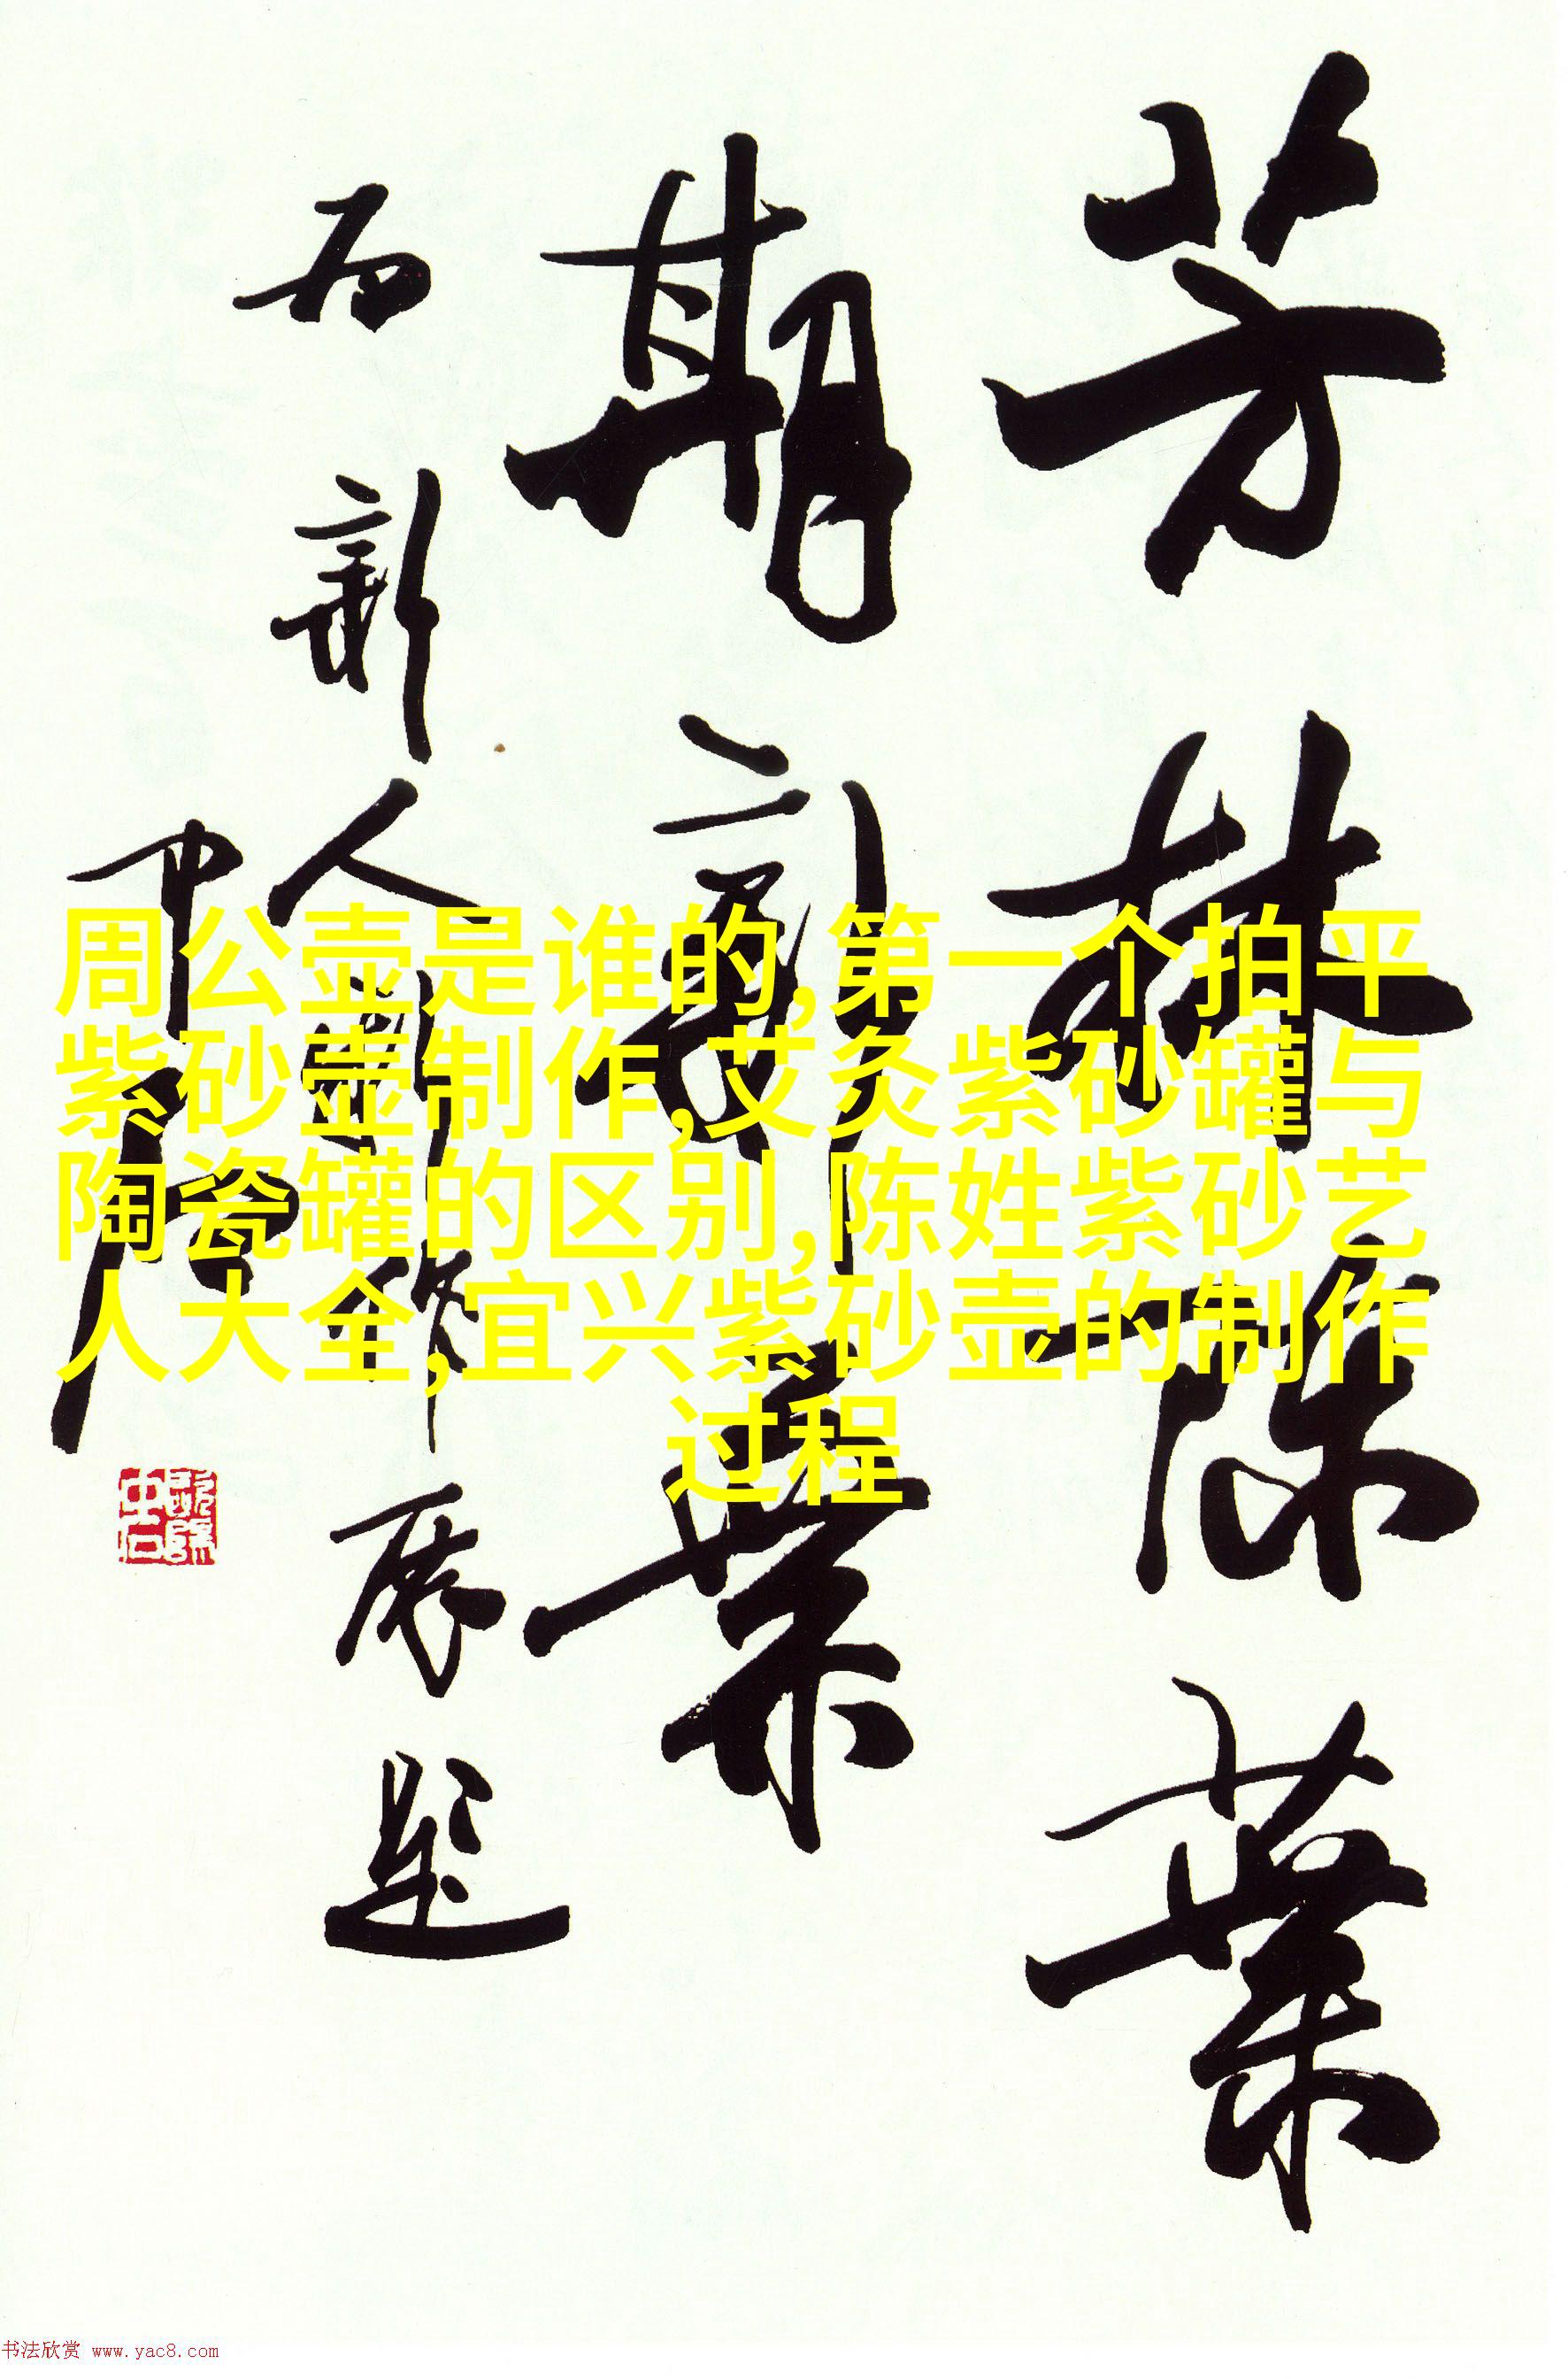 芳林陈叶
期新叶
为新人国画作展题
中石
周公壶是谁的,第一个拍平
紫砂壶制作,艾灸紫砂罐与
陶瓷罐的区别,陈姓紫砂艺
人大全,宜兴紫砂壶的制作
过程
欧阳中石
书法欣赏 www.yac8.com